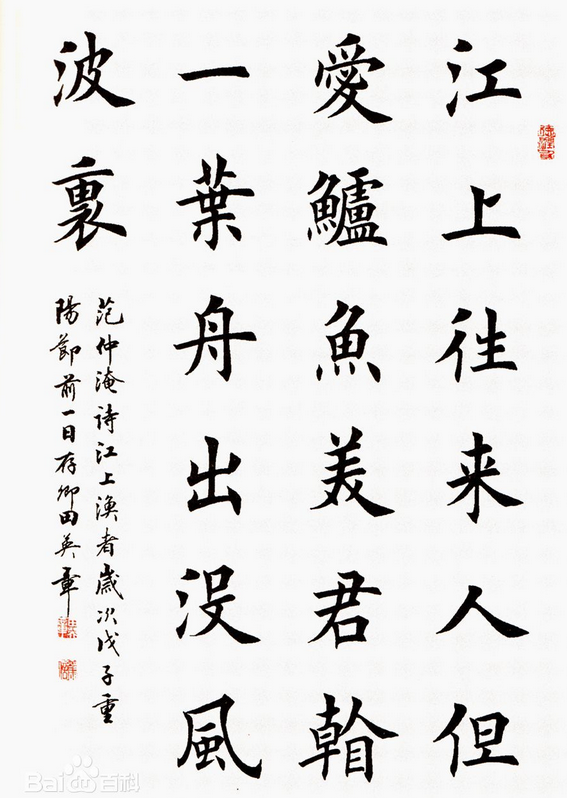 江上往来人但
愛鱸魚美君看
一葉舟出没風
波裏
范仲淹诗江上渔者歲次戊子重
陽節前一日存卿田英章
Bai百科